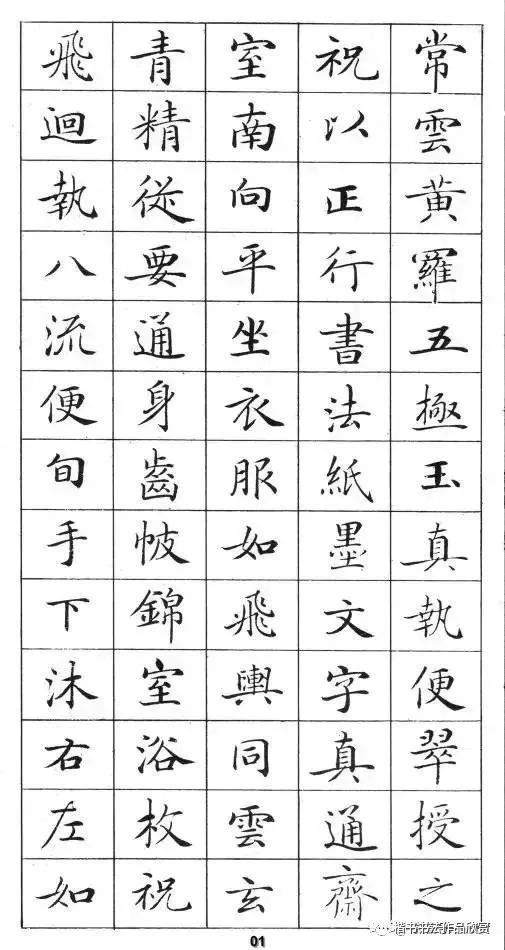 常雲黄羅五極玉真執便翠授之
祝以正行書法紙墨文字真通齋
室南向平坐衣服如飛輿同雲玄
青精從要通身齒帔錦室浴枚祝
飛迴執八流便旬手下沐右左如
01
楷书书法作品欣赏